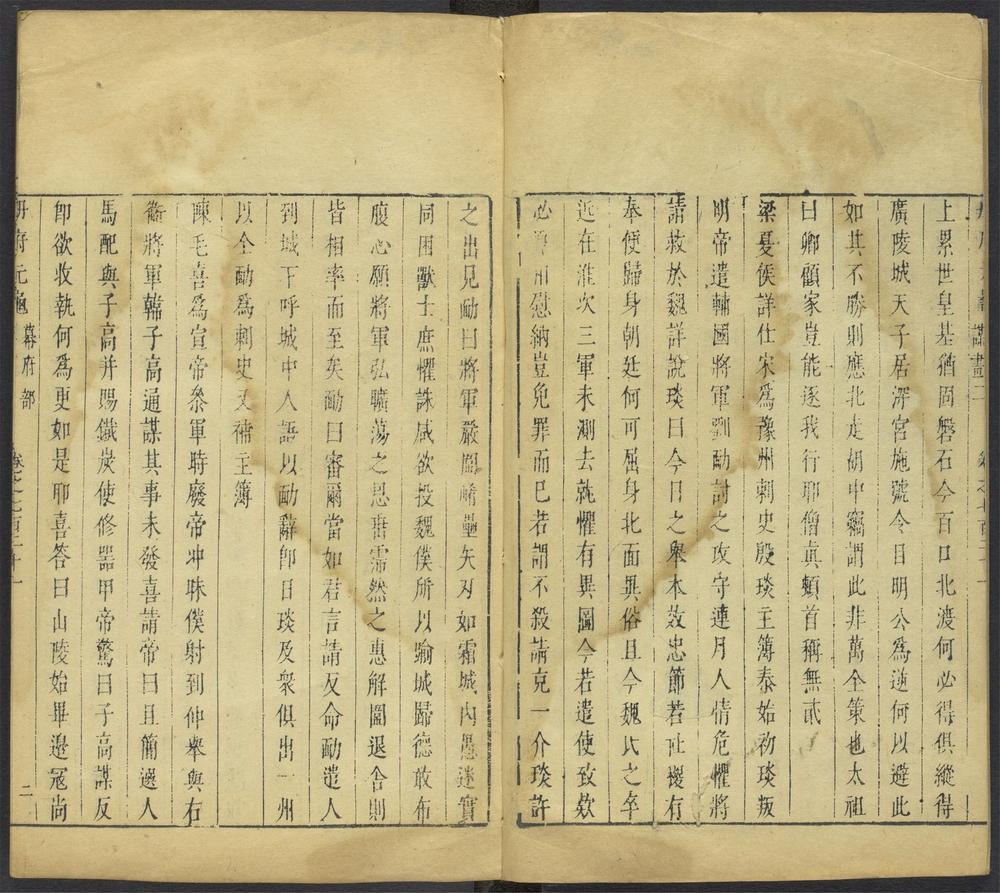 上累世皇基猶固磐石今百口北渡何必得俱縱得
廣陵城天子居深宮施號令日明公爲逆何以避此
如其不勝則應北走胡中竊謂此非萬全策也太祖
曰卿顧家豈能逐我行耶僧眞頓首稱無貳
梁夏侯詳仕宋爲豫州刺史殷琰主簿泰始初琰叛
明帝遣輔國將軍劉勔討之攻守連月人情危懼將
請救於魏詳說琰曰今日之舉本效忠節若社稷有
奉便歸身朝廷何可屈身北面異俗且今魏氏之卒
近在淮次三軍未測去就懼有異圖今若遣使致欵
必厚相慰納豈免罪而已若謂不殺請克一介琰許
之出見勔曰將軍嚴圍峭壘矢刃如霜城內愚迷實
同困獸士庶懼誅咸欲投魏僕所以踰城歸德敢布
腹心願將軍弘曠蕩之恩垂霈然之惠解圍退舍則
皆相率而至矣勔曰審爾當如君言請反命勔遣人
到城下呼城中人語以勔辭卽日琰及衆俱出一州
以全勔爲刺史又補主簿
陳毛喜爲宣帝叅軍時廢帝冲昧僕射到仲舉與右
衞將軍韓子高通謀其事未發喜請帝曰且簡選人
馬配與子高并賜鐵炭使修器甲帝驚曰子高謀反
卽欲收執何爲更如是耶喜答曰山陵始畢邊冦尚
册府元龜 幕府部 卷之七百二十一 二